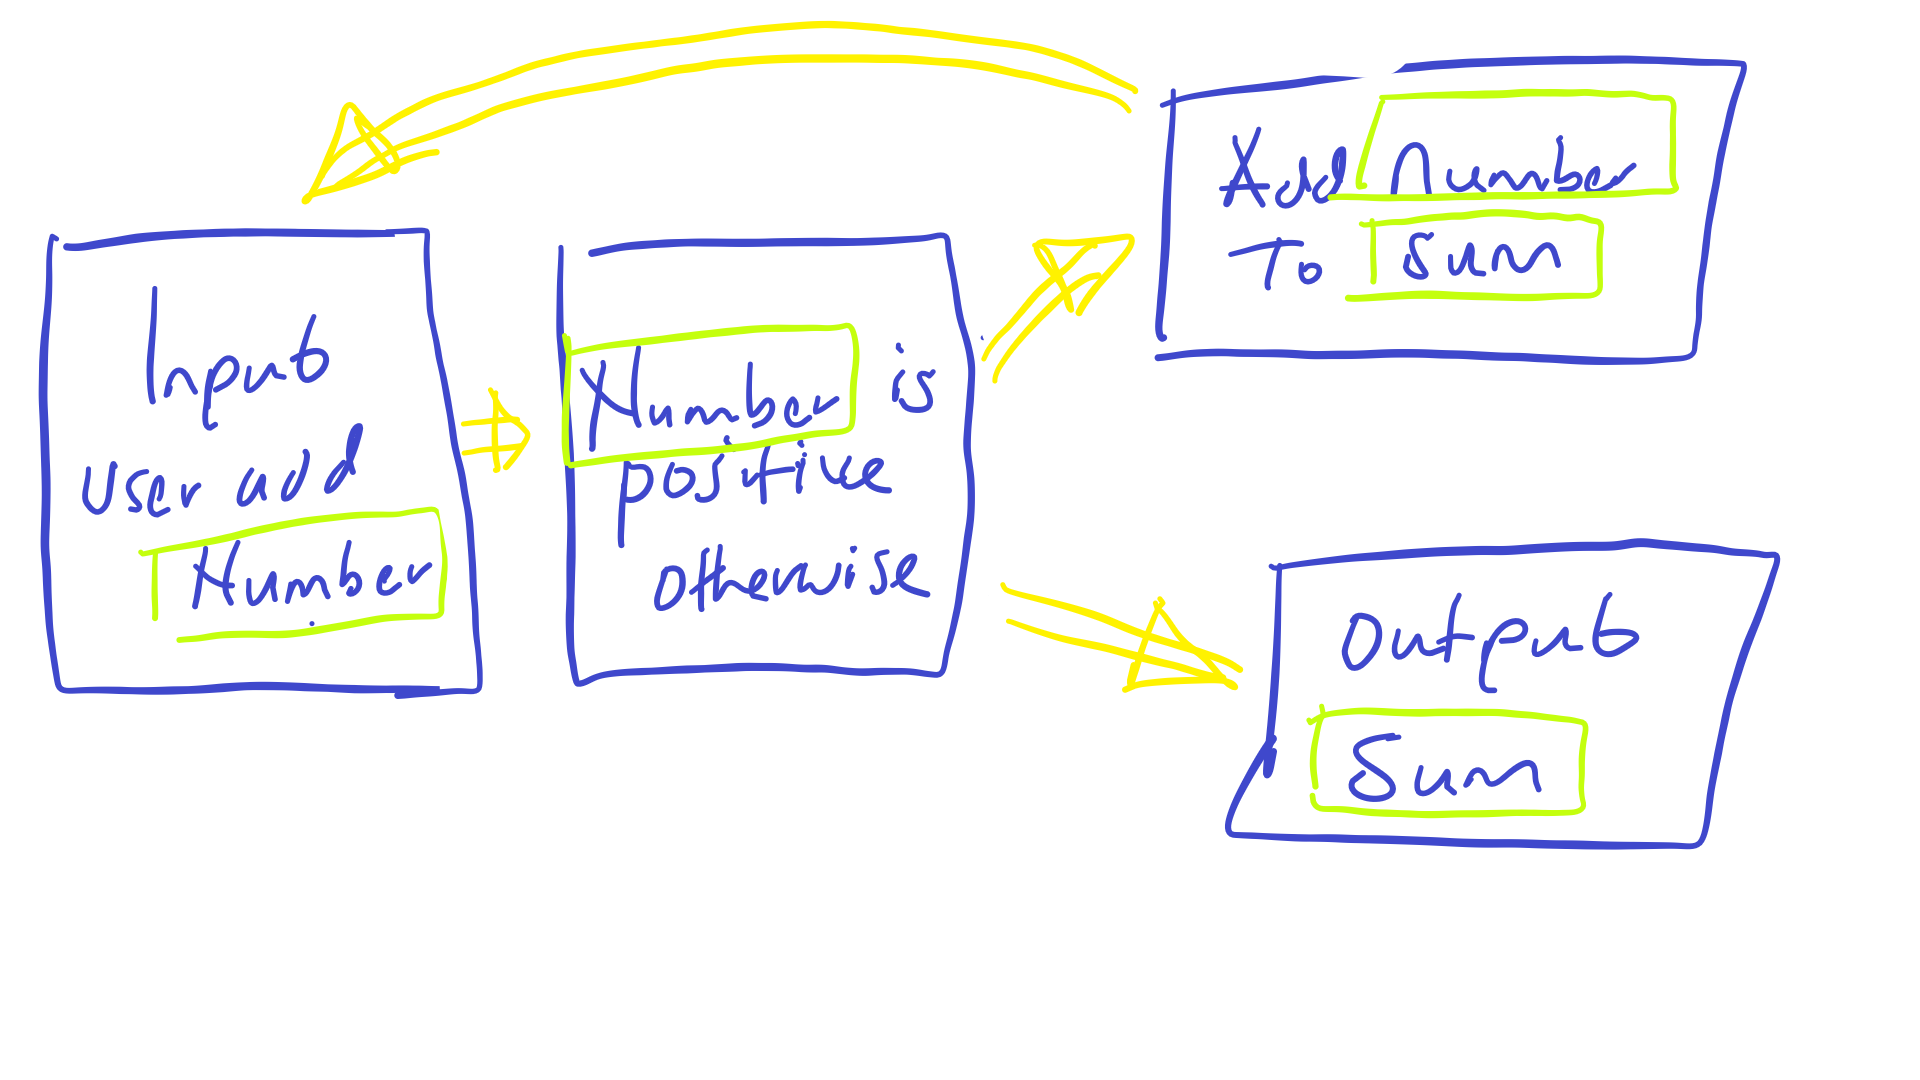 Input
User add
Number
Number is
positive
otherwise
Add Number
To Sum
Output
Sum